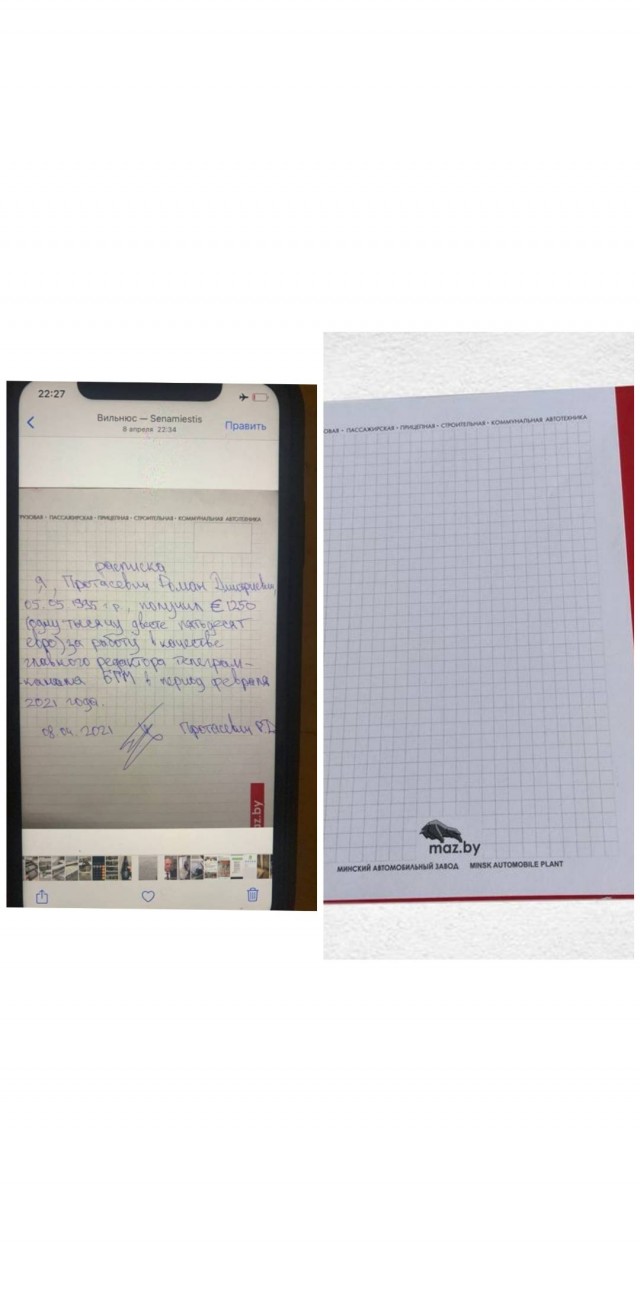 22:27
Вильнюс — Senamiestis
8 апреля 22:34
Править
РУЗОВАЯ • ПАССАЖИРСКАЯ • ПРИЦЕПНАЯ • СТРОИТЕЛЬНАЯ • КОММУНАЛЬНАЯ АВТОТЕХНИКА
расписка
Я, Протасевич Роман Дмитриевич,
05.05.1995 г.р., получил €1250
(одну тысячу двести пятьдесят
евро) за работу в качестве
главного редактора телеграм-
канала БГМ в период февраля
2021 года.
08.04.2021 Протасевич РД
az.by
ОВАЯ • ПАССАЖИРСКАЯ • ПРИЦЕПНАЯ • СТРОИТЕЛЬНАЯ • КОММУНАЛЬНАЯ АВТОТЕХНИКА
maz.by
МИНСКИЙ АВТОМОБИЛЬНЫЙ ЗАВОД MINSK AUTOMOBILE PLANT